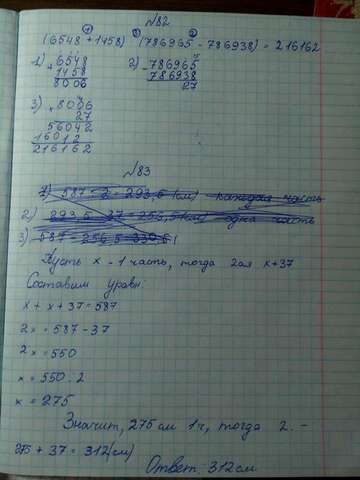 №82
① ③ ②
(6548 + 1458) (786965 - 786938) = 216162
1) + 6548 2) - 786965
1458 786938
8006 27
3) × 8006
27
56042
16012
216162
№83
1) 587 : 2 = 293,5 (см) каждая часть
2) 293,5 - 37 = 256,5 (см) одна часть
3) 587 - 256,5 = 330,5
Пусть x - 1 часть, тогда 2ая x+37
Составим уравн:
x + x + 37 = 587
2x = 587 - 37
2x = 550
x = 550 : 2
x = 275
Значит, 275 см 1ч, тогда 2. -
275 + 37 = 312 (см)
Ответ 312см